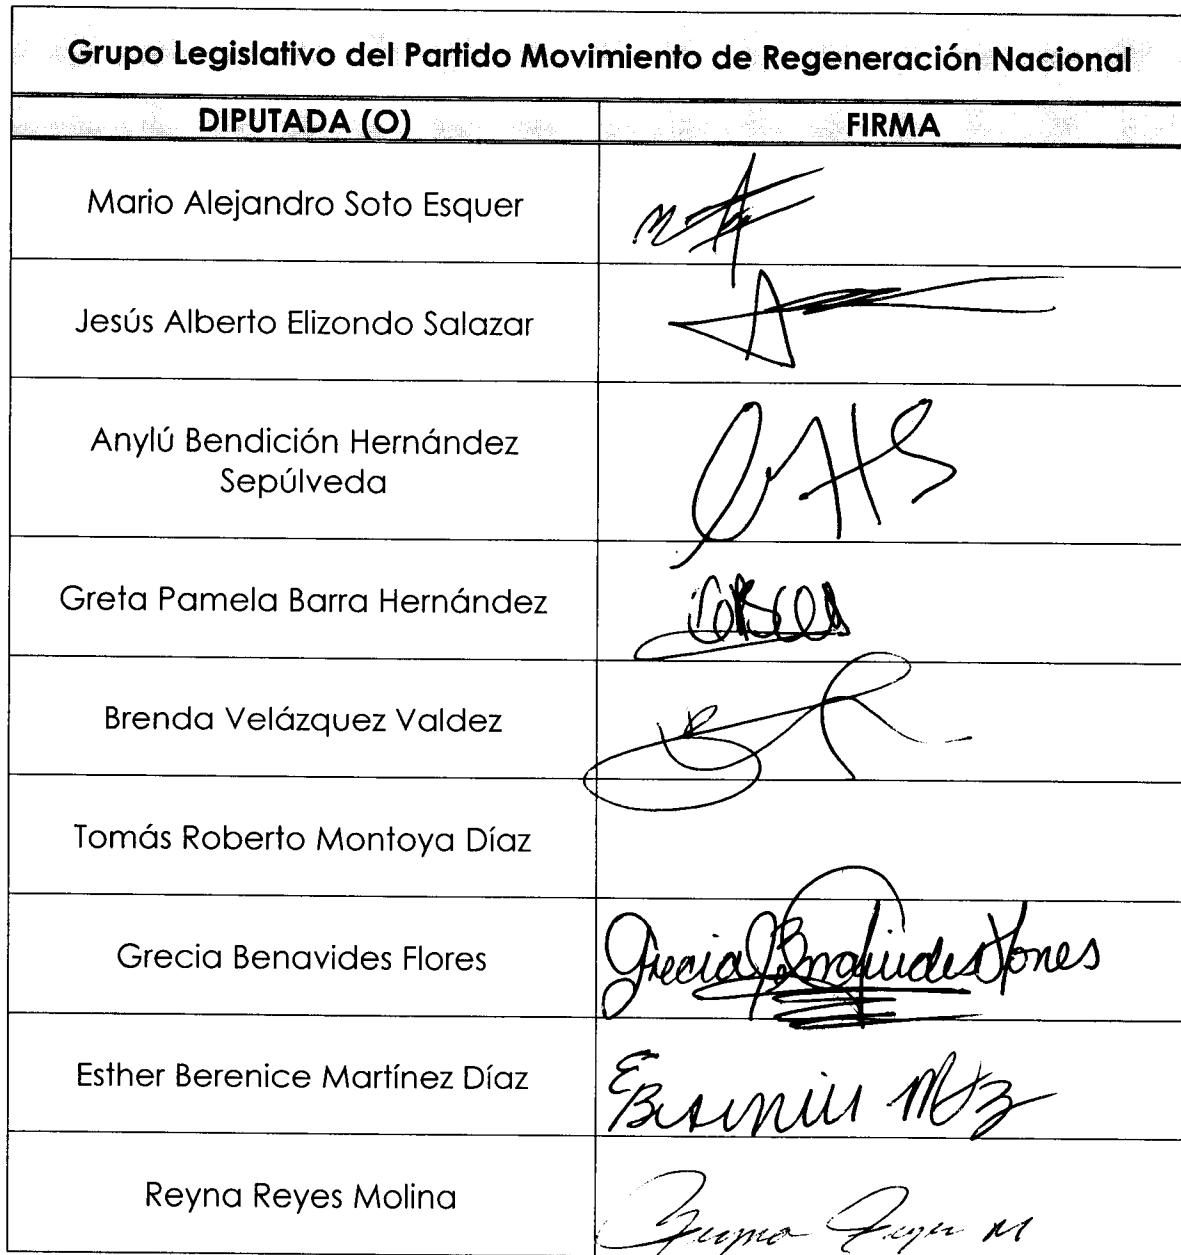 Grupo Legislativo del Partido Movimiento de Regeneración Nacional
DIPUTADA (O) FIRMA
Mario Alejandro Soto Esquer
Jesús Alberto Elizondo Salazar
Anylú Bendición Hernández
Sepúlveda
Greta Pamela Barra Hernández
Brenda Velázquez Valdez
Tomás Roberto Montoya Díaz
Grecia Benavides Flores Grecia Benavides Flores
Esther Berenice Martínez Díaz E Berenice Mtz
Reyna Reyes Molina Reyna Reyes M